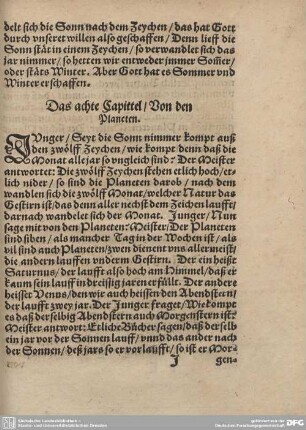 delt sich die Sonn nach dem Zeychen / das hat Gott
durch vnseret willen also geschaffen / Denn lieff die
Sonn stät in einem Zeychen / so verwandlet sich das
jar nimmer / so hetten wir entweder immer Som̃er /
oder stäts Winter. Aber Gott hat es Sommer vnd
Winter erschaffen.
Das achte Capittel / Von den
Planeten.
JVnger / Seyt die Sonn nimmer kompt auß
den zwölff Zeychen / wie kompt denn daß die
Monat alle jar so vngleich sind? Der Meister
antwortet: Die zwölff Zeychen stehen etlich hoch / et-
lich nider / so sind die Planeten darob / nach dem
wandlen sich die zwölff Monat / welcher Natur das
Gestirn ist / das denn aller nechst dem Zeichen laufft /
darnach wandelet sich der Monat. Junger / Nun
sage mit von den Planeten: Meister / Der Planeten
sind siben / als mancher Tag in der Wochen ist / als
vil sind auch Planeten / zwen dienent vns allermeist /
die andern lauffen vnderm Gestirn. Der ein heißt
Saturnus / der laufft also hoch am Himmel / daß er
kaum sein lauff in dreissig jaren er füllt. Der andere
heisset Venus / den wir auch heissen den Abendstern /
der laufft zwey jar. Der Junger fraget / Wie kompt
es daß derselbig Abendstern auch Morgenstern ist?
Meister antwort: Etliche Bücher sagen / daß derselb
ein jar vor der Sonnen lauff / vnnd das ander nach
der Sonnen / deß jars so er vor laufft / so ist er Mor-
J
gen-
Sächsische Landesbibliothek -
Staats- und Universitätsbibliothek Dresden
gefördert von der
Deutschen Forschungsgemeinschaft